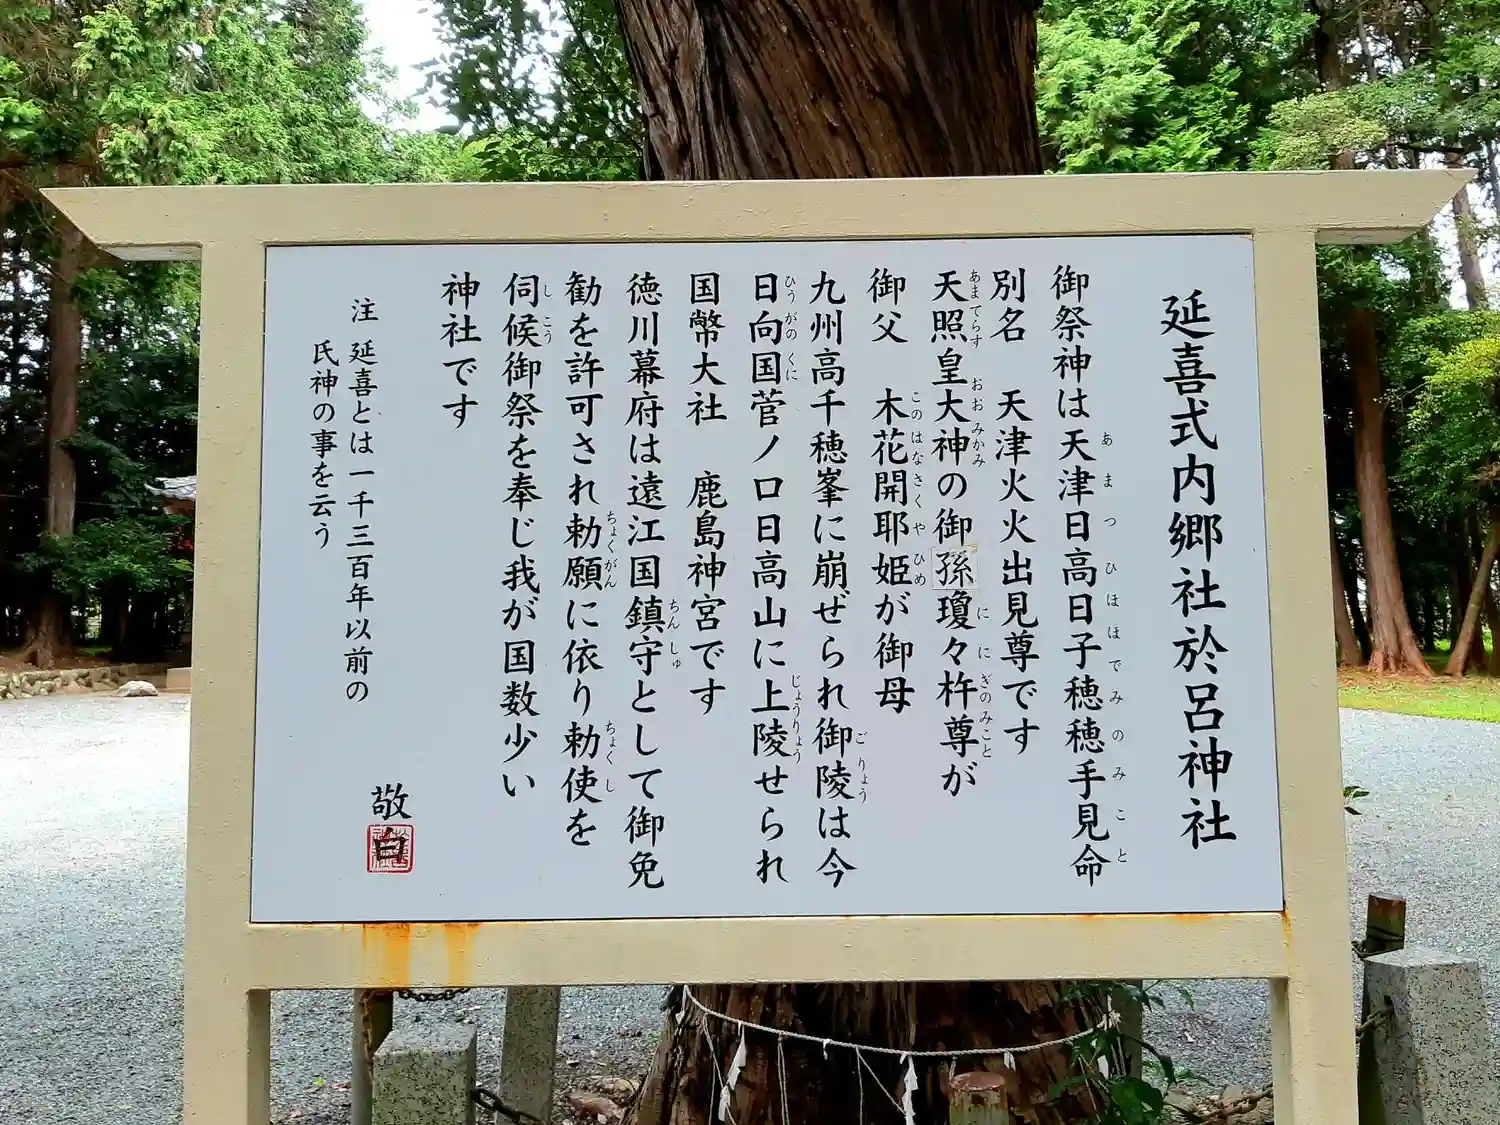 延喜式内郷社於呂神社
御祭神は天津日高日子穂穂手見命
別名　天津火火出見尊です
天照皇大神の御孫瓊々杵尊が
御父　木花開耶姫が御母
九州高千穂峯に崩ぜられ御陵は今
日向国菅ノ口日高山に上陵せられ
国幣大社　鹿島神宮です
徳川幕府は遠江国鎮守として御免
勧を許可され勅願に依り勅使を
伺候御祭を奉じ我が国数少い
神社です
注　延喜とは一千三百年以前の
氏神の事を云う
敬白